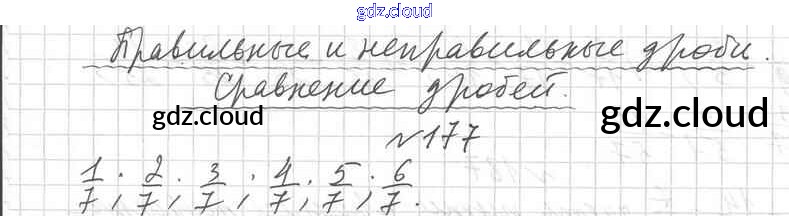 gdz.cloud
Правильные и неправильные дроби.
Сравнение дробей.
gdz.cloud
gdz.cloud
№177
1/7; 2/7; 3/7; 4/7; 5/7; 6/7.